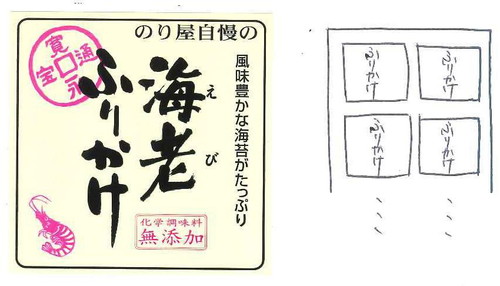 のり屋自慢の
風味豊かな海苔がたっぷり
海老
えび
ふりかけ
寛永通宝
化学調味料
無添加
ふりかけ
ふりかけ
ふりかけ
ふりかけ